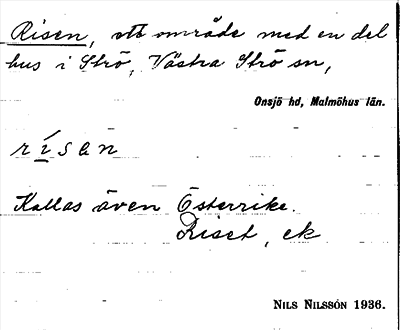 Risen, ett område med en del
hus i Strö, Västra Strö sn,
Onsjö hd, Malmöhus län.
rísan
Kallas även Österrike.
Riset, ek
NILS NILSSON 1936.